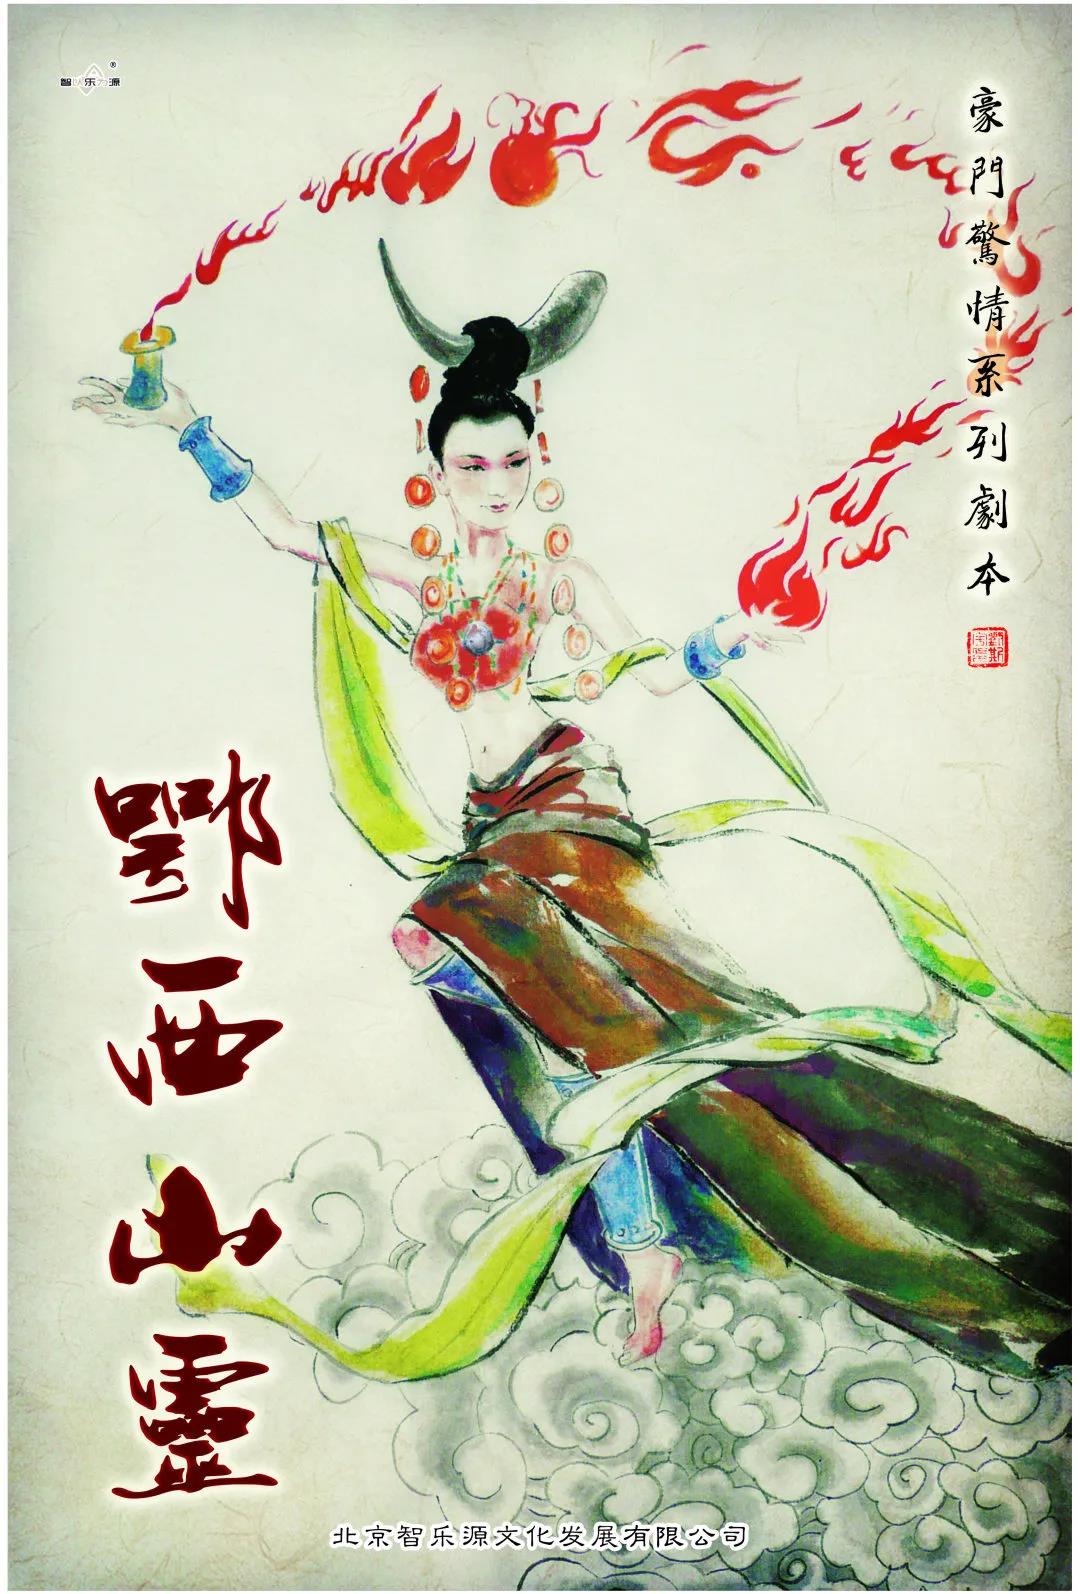 智以乐为源
®
豪門驚情系列劇本
鄂西山靈
北京智乐源文化发展有限公司